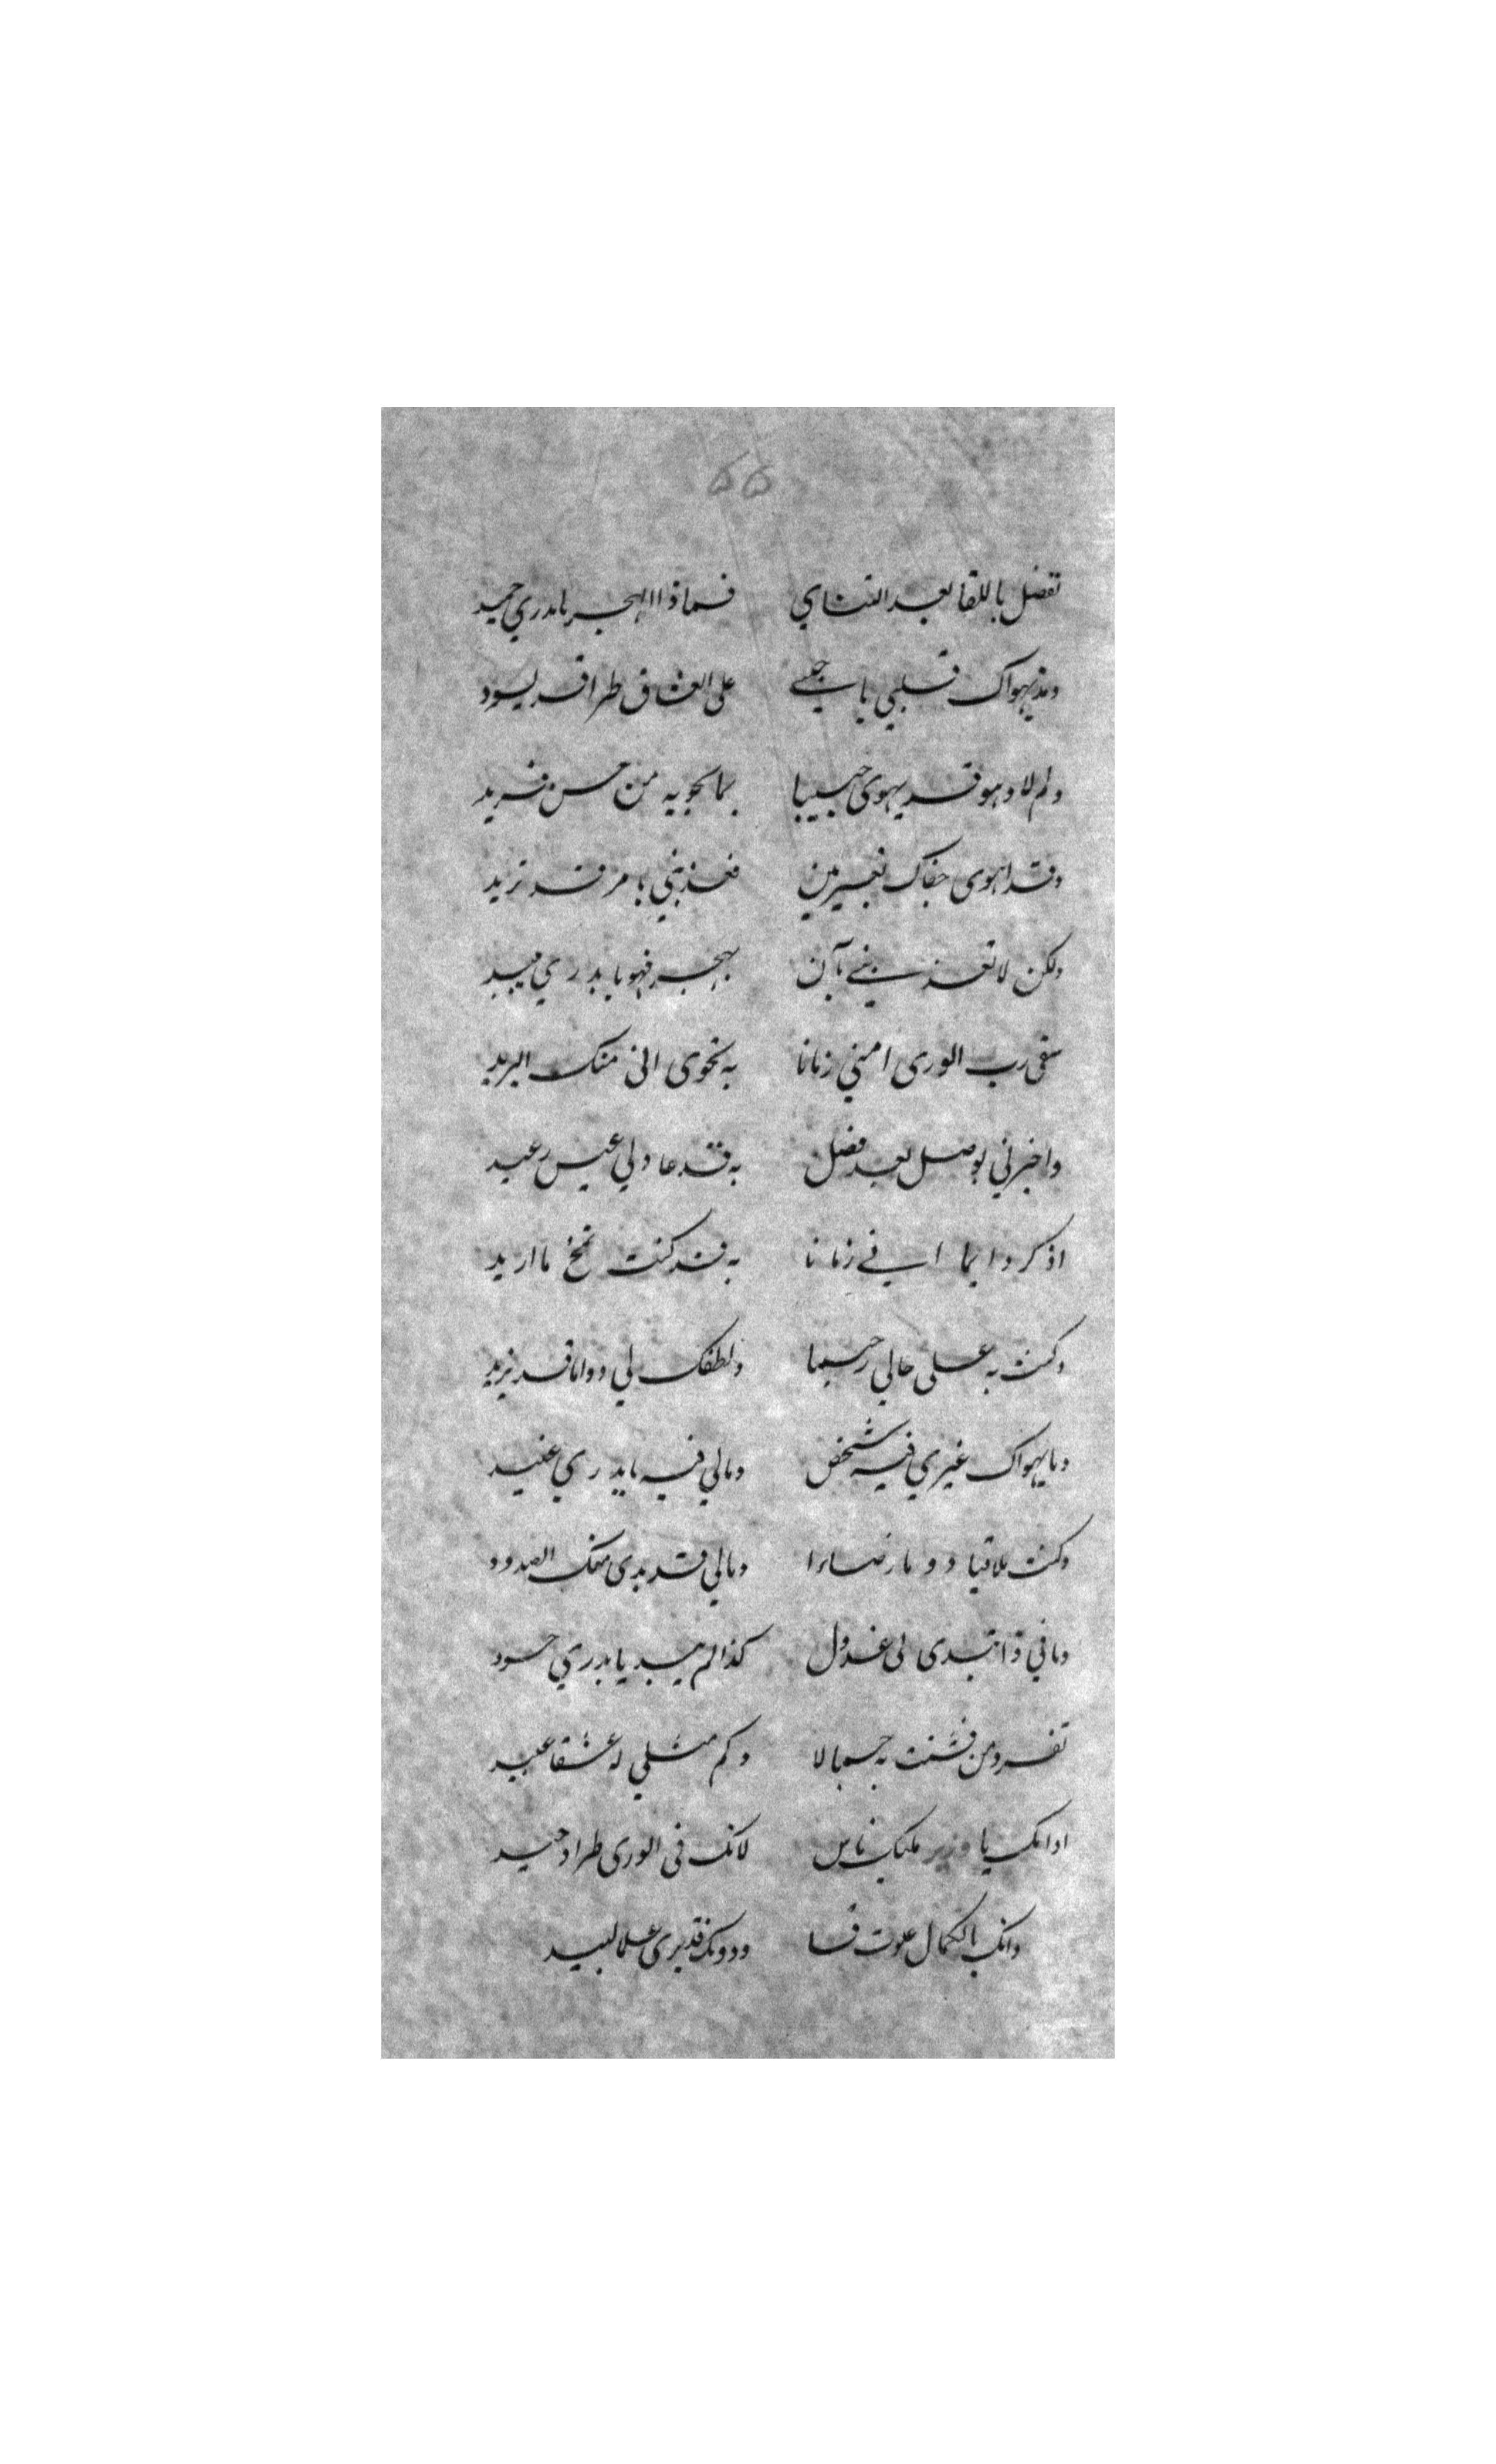 ۵۵
تفضل باللقا بعد التنائي فما ذا الهجر يا بدري حميد
ومذ يهواك قلبي يا حبيبي على العشاق طرا قد يسود
ولم لا وهو قد يهوى حبيبا بما يحويه من حسن فريد
وقد اهوى جفاك بغير بين فعذبني بامر قد تريد
ولكن لا تعذبني بآن بهجر فهو يا بدري يبيد
سقى رب الورى امني زمانا به نحوى اتى منك البريد
واخبرني بوصل بعد فصل به قد عاد لي عيش رغيد
اذكر دايما اني زمانا به قد كنت تمنح ما اريد
وكنت به على حالي رحيما ولطفك لي دواما قد يزيد
وما يهواك غيري فيه شخص ومالي فيه يا بدري عنيد
وكنت ملاقيا دوما رضاءا ومالي قد بدى منك الصدود
وما في ذا تبدى لي عذول كذا لم يبد يا بدري حسود
تفرد من فتنت به جمالا وكم مثلي له عشقا عبيد
ادانك يا وزير ملك ناس لانك في الورى طرا وحيد
وانك بالكمال علوت قسا ودونك قد يرى علما لبيد